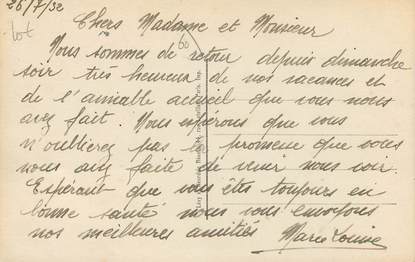 26/7/32
Chers Madame et Monsieur
lot
60
Nous sommes de retour depuis dimanche
soir très heureux de nos vacances et
de l'aimable accueil que vous nous
avez fait. Nous espérons que vous
n'oublierez pas la promesse que vous
nous avez faite de venir nous voir.
Espérant que vous êtes toujours en
bonne santé nous vous envoyons
nos meilleures amitiés
Marie Louise